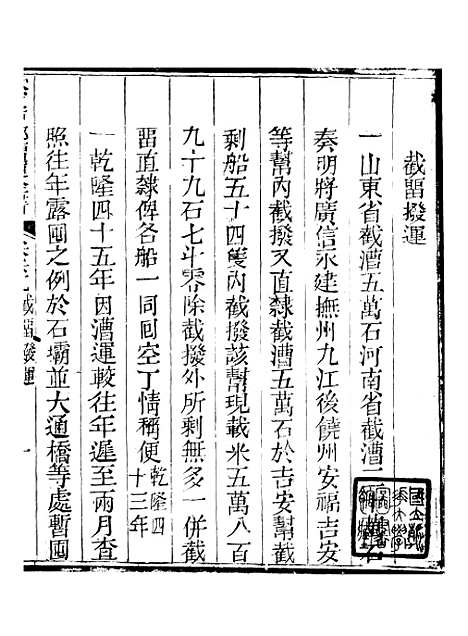 截畱撥運
一山東省截漕五萬石河南省截漕二萬石
奏明將廣信永建撫州九江後饒州安福吉安
等幫內截撥又直隸截漕五萬石於吉安幫截
剩船五十四隻內截撥該幫現載米五萬八百
九十九石七斗零除截撥外所剩無多一併截
畱直隸俾各船一同囘空丁情稱便乾隆四十三年
一乾隆四十五年因漕運較往年遲至兩月查
照往年露囤之例於石壩並大通橋等處暫囤
截畱撥運
一